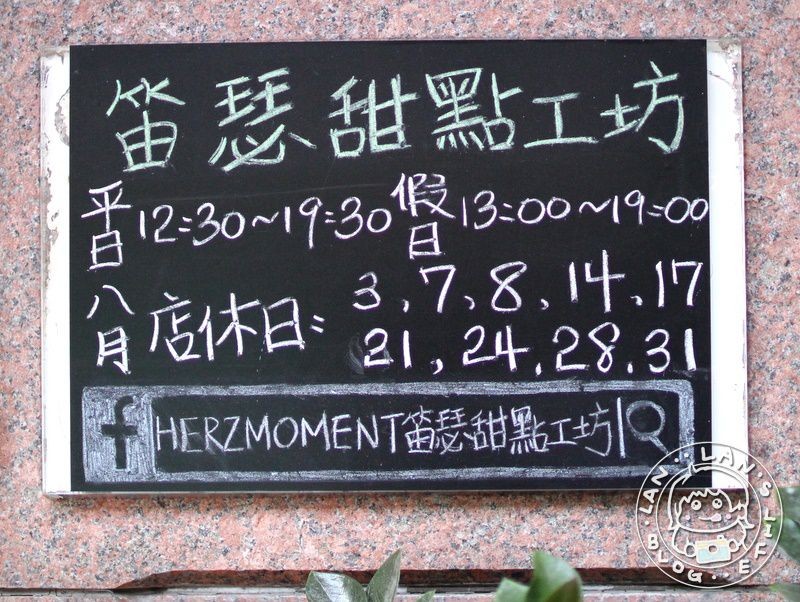 笛瑟甜點工坊
平日 12:30~19:30 假日 13:00~19:00
八月 店休日: 3、7、8、14、17
21,24.28.31
f HERZMOMENT笛瑟甜點工坊
LAN LAN'S LIFE BLOG